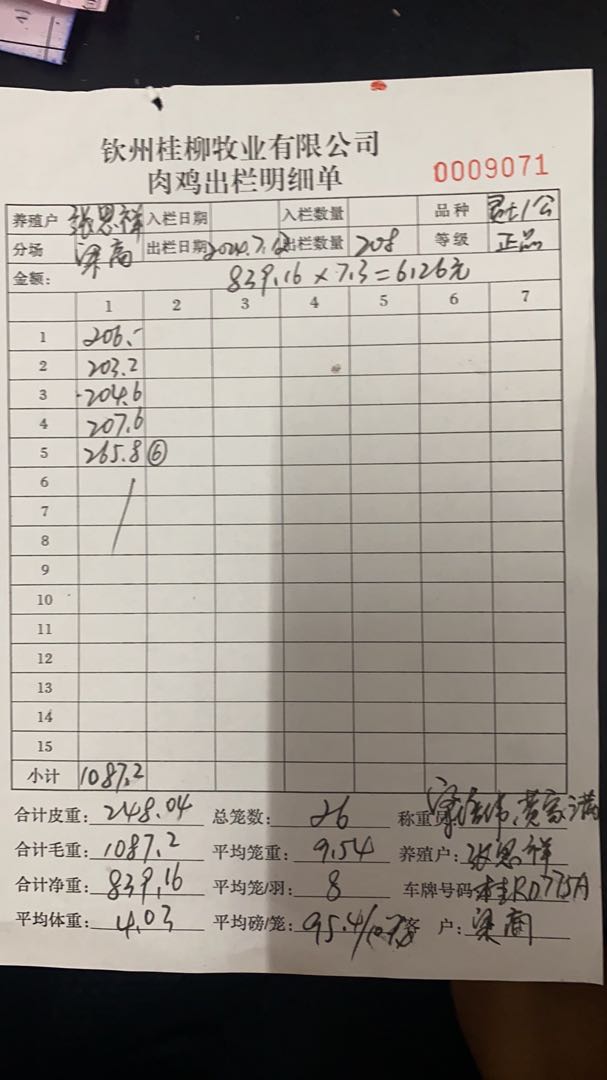 钦州桂柳牧业有限公司
肉鸡出栏明细单
0009071
养殖户 张恩祥 入栏日期 入栏数量 品种 公
分场 出栏日期 2020.7. 出栏数量 208 等级 正品
金额: 839.16 × 7.3 = 6126元
1 2 3 4 5 6 7
1 206.-
2 203.2
3 204.6
4 207.6
5 265.8 ⑥
6
7
8
9
10
11
12
13
14
15
小计 1087.2
合计皮重: 248.04 总笼数: 26 称重员:
合计毛重: 1087.2 平均笼重: 9.54 养殖户: 张恩祥
合计净重: 839.16 平均笼/羽: 8 车牌号码: 桂RD775A
平均体重: 4.03 平均磅/笼: 95.4/ 客户: